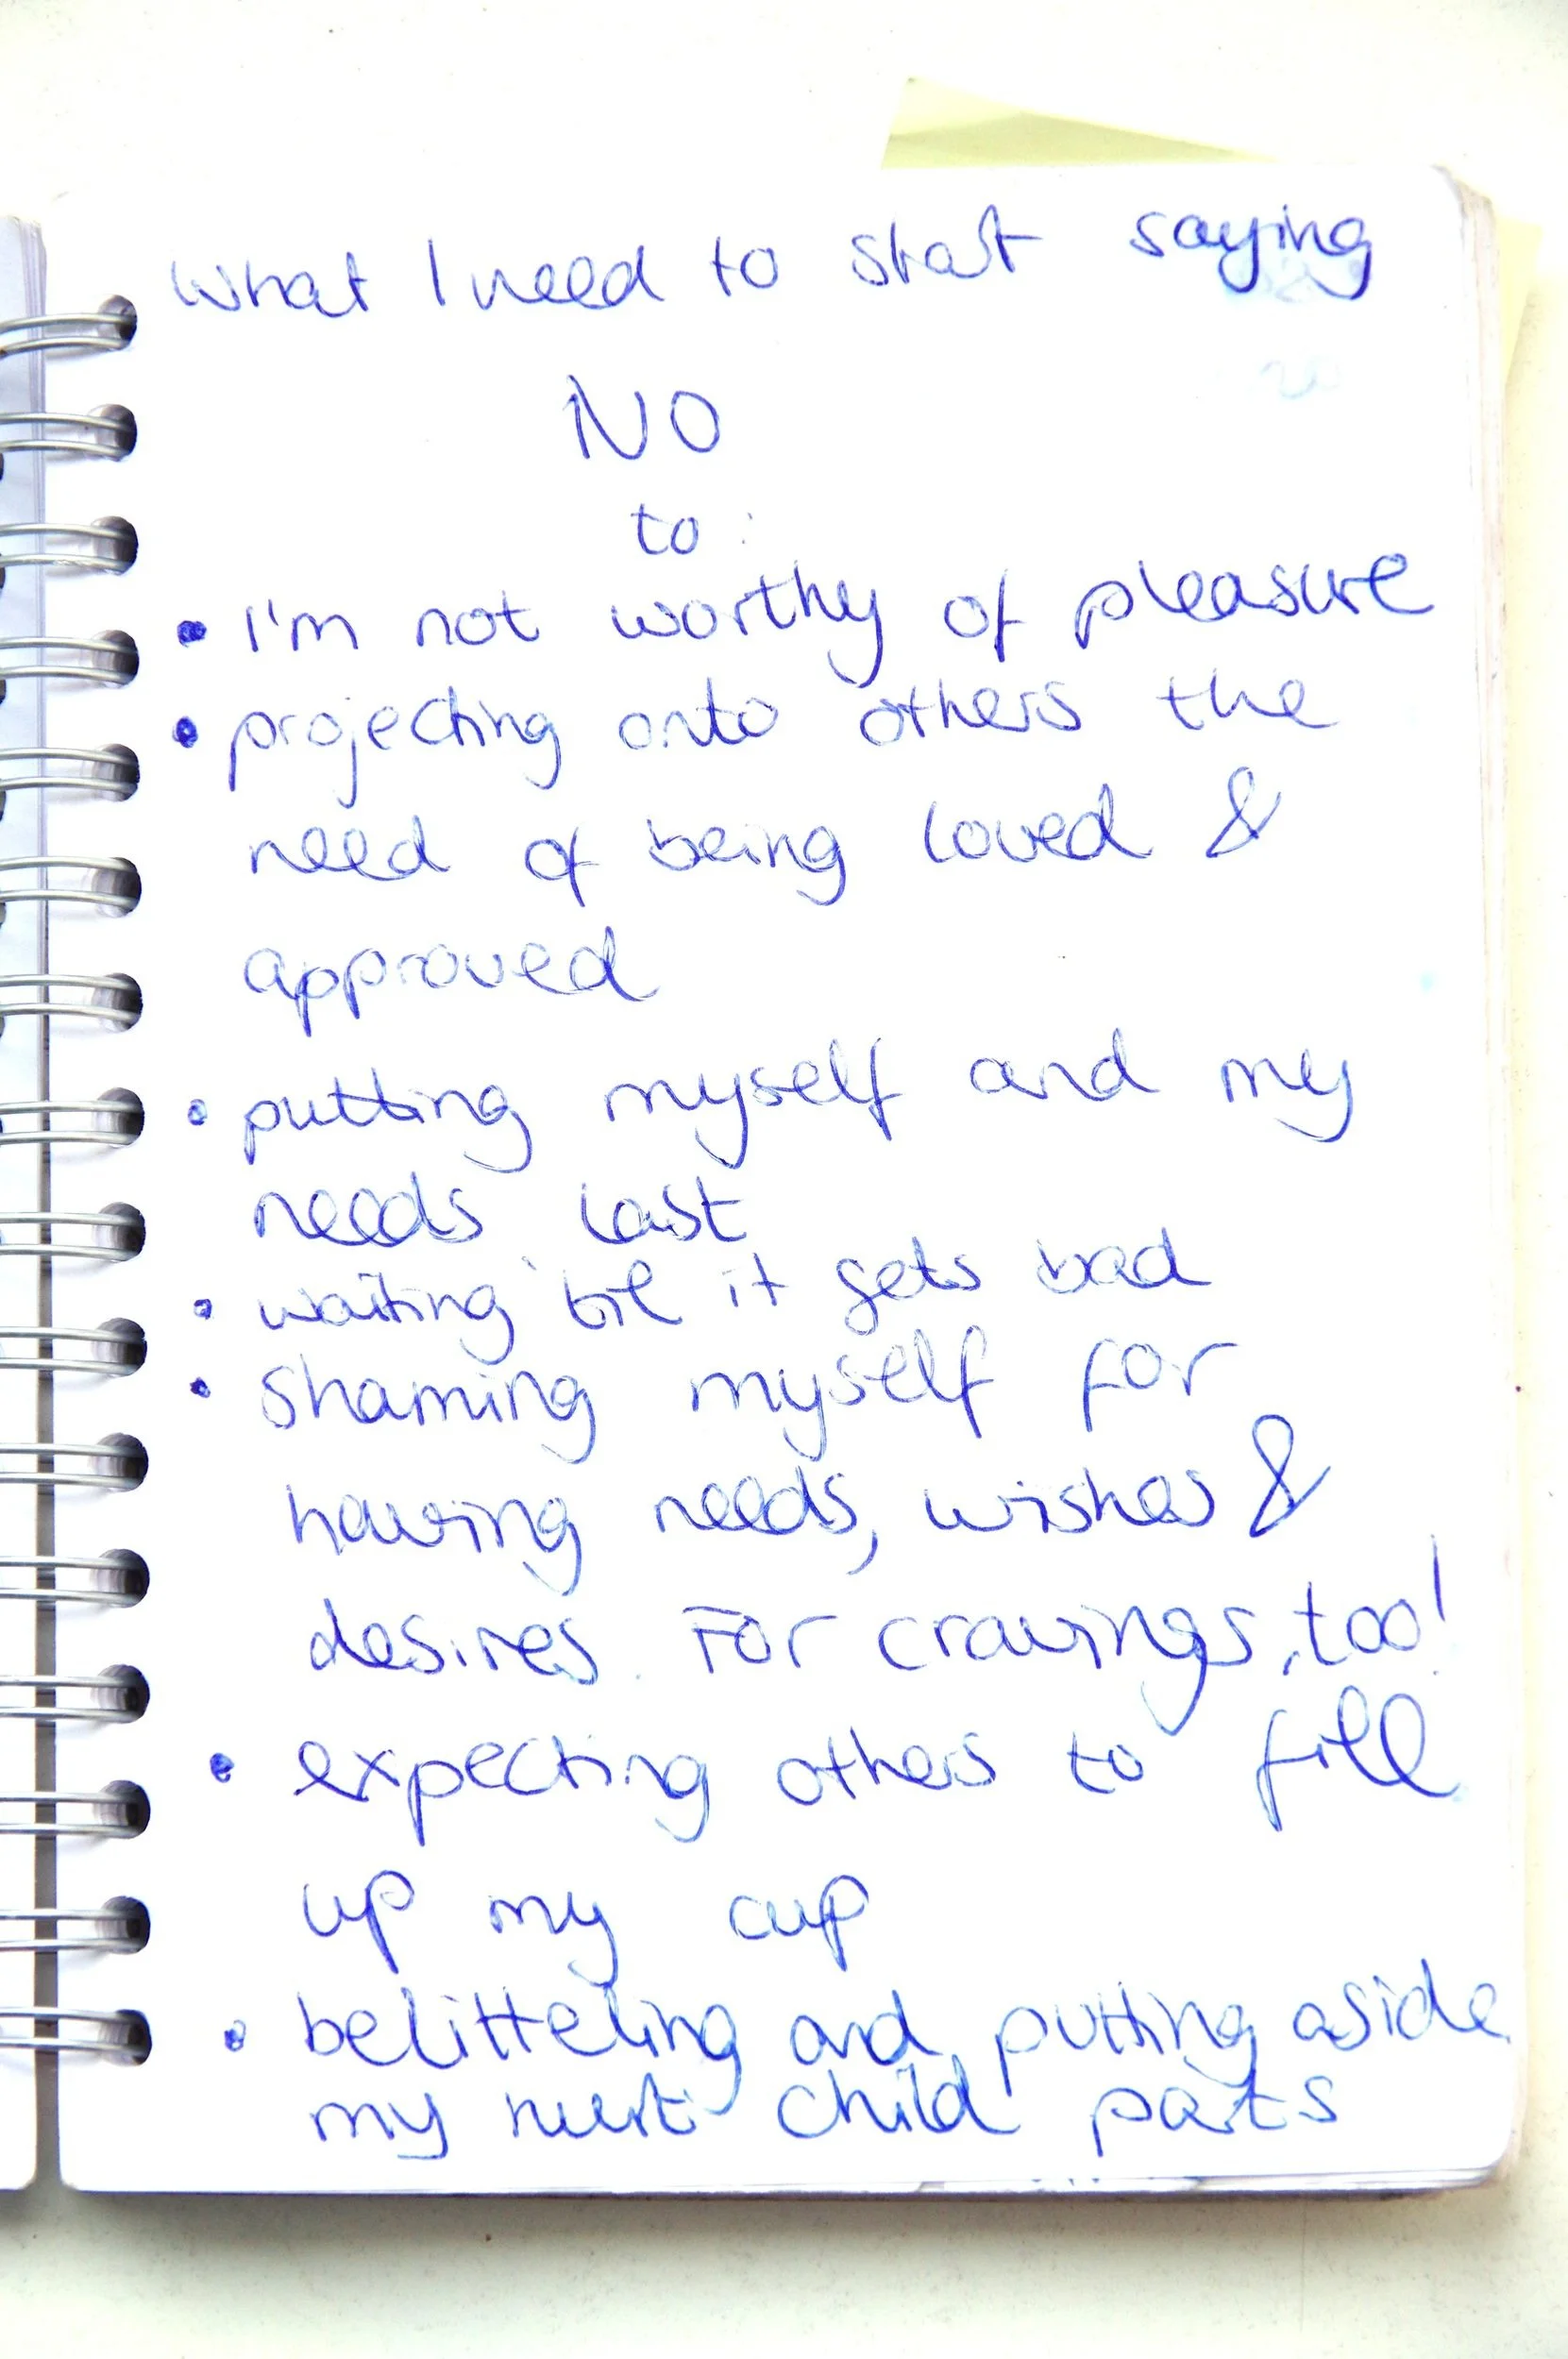 What I need to start saying
NO
to:
• I'm not worthy of pleasure
• projecting onto others the
need of being loved &
approved
• putting myself and my
needs last
• waiting 'til it gets bad
• shaming myself for
having needs, wishes &
desires. For cravings, too!
• expecting others to fill
up my cup
• belitteling and putting aside
my hurt child parts